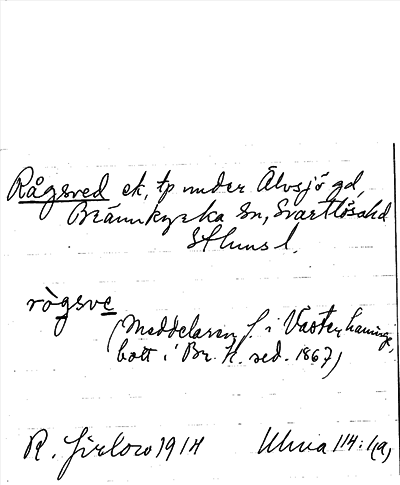 Rågsved ek, tp under Älvsjö gd,
Brännkyrka sn, Svartlösa hd
Sthms l.
rògsve
(Meddelaren f. i Västerhaninge,
bott i Br. k. sed. 1867)
R. Jirlow 1914 Ulma 114:1(a)